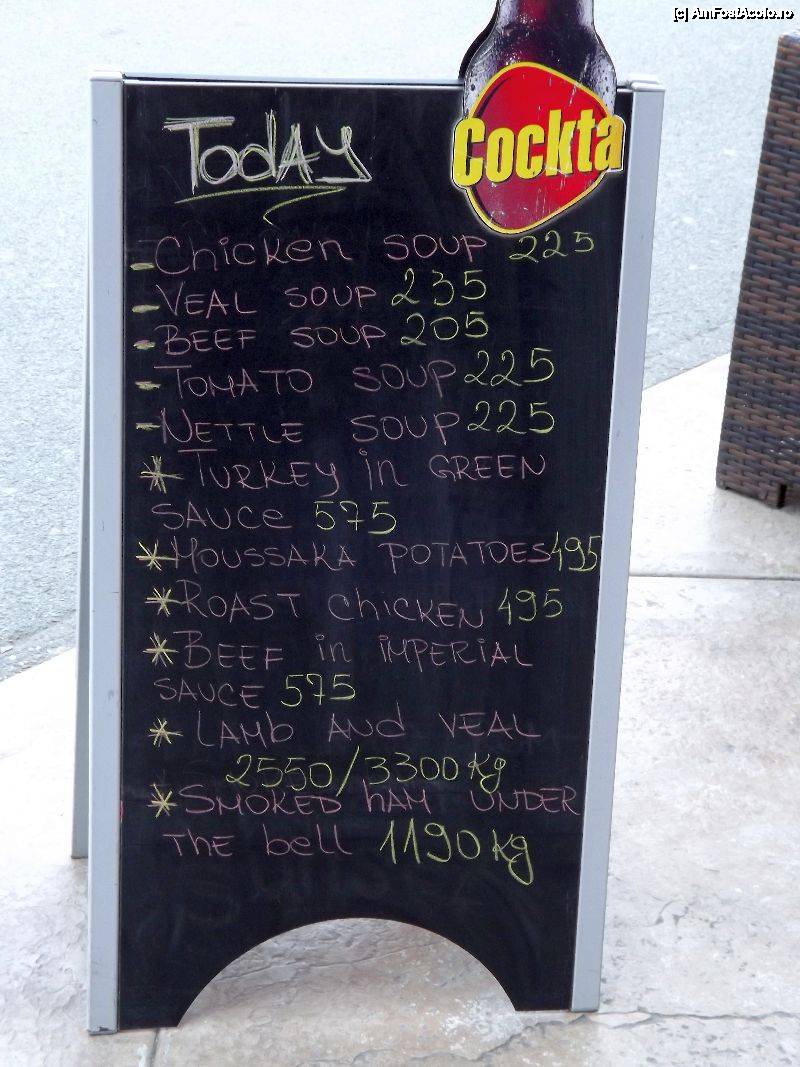 [c] AmFostAcolo.ro
Cockta
Today
- Chicken soup 225
- Veal soup 235
- Beef soup 205
- Tomato soup 225
- Nettle soup 225
* Turkey in green
sauce 575
* Moussaka potatoes 495
* Roast chicken 495
* Beef in imperial
sauce 575
* Lamb and veal
2550/3300 kg
* Smoked ham under
the bell 1190 kg